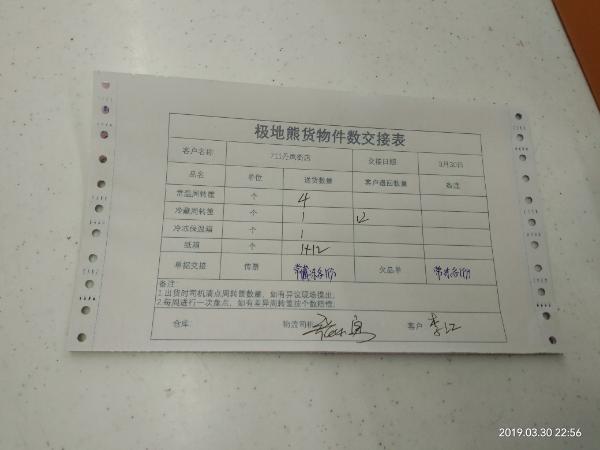 极地熊货物件数交接表
客户名称 711丹凤街店 交接日期 3月30日
品名 单位 送货数量 客户退回数量 备注
常温周转筐 个 4
冷藏周转筐 个 1 12
冷冻保温箱 个 1
纸箱 个 1+12
单据交接 传票 欠品单
备注:
1.出货时司机清点周转筐数量,如有异议现场提出,
2.每周进行一次盘点,如有差异周转筐按个数赔偿,
仓库: 物流司机 客户 李江
2019.03.30 22:56